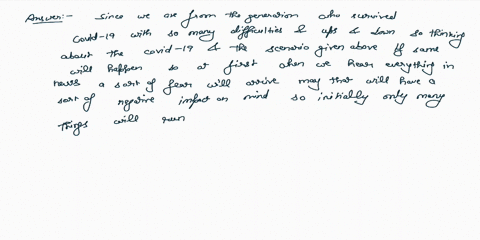 Answer:- Since we are from the generation who survived
Covid-19 with so many difficulties & ups & down so thinking
about the covid-19 & the scenario given above if same
will happen so at first when we hear everything in
news a sort of fear will arrive may that will have a
sort of negative impact on mind so initially only many
things will run